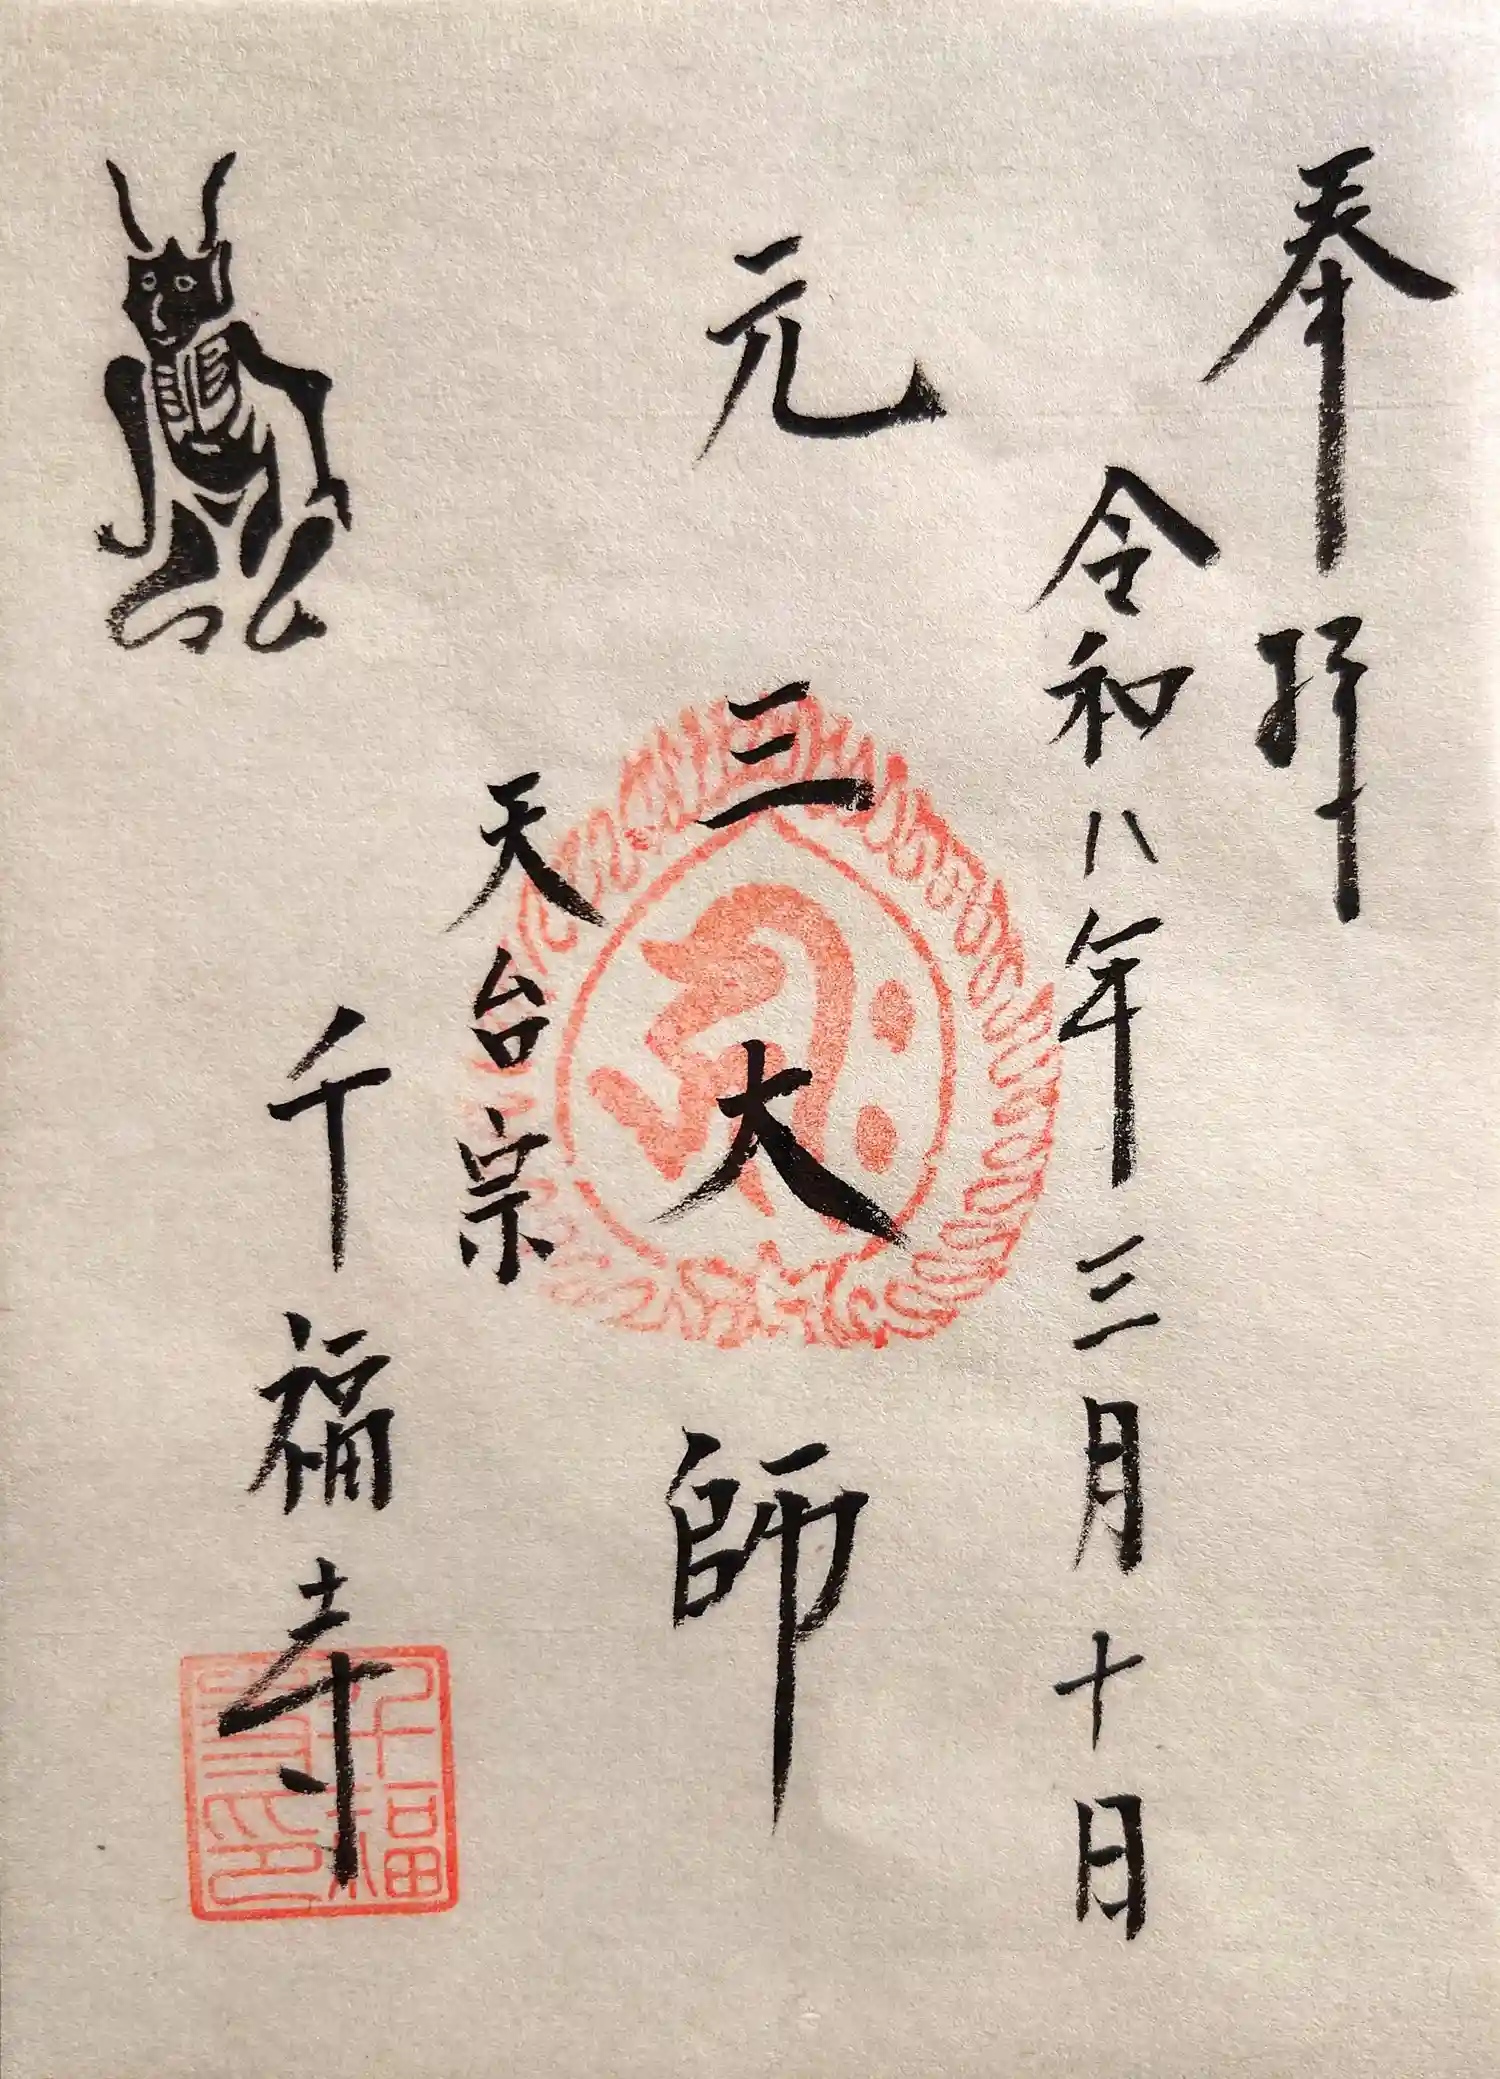 奉拝
令和八年三月十日
元三大師
天台宗
千福寺
千福
寺印